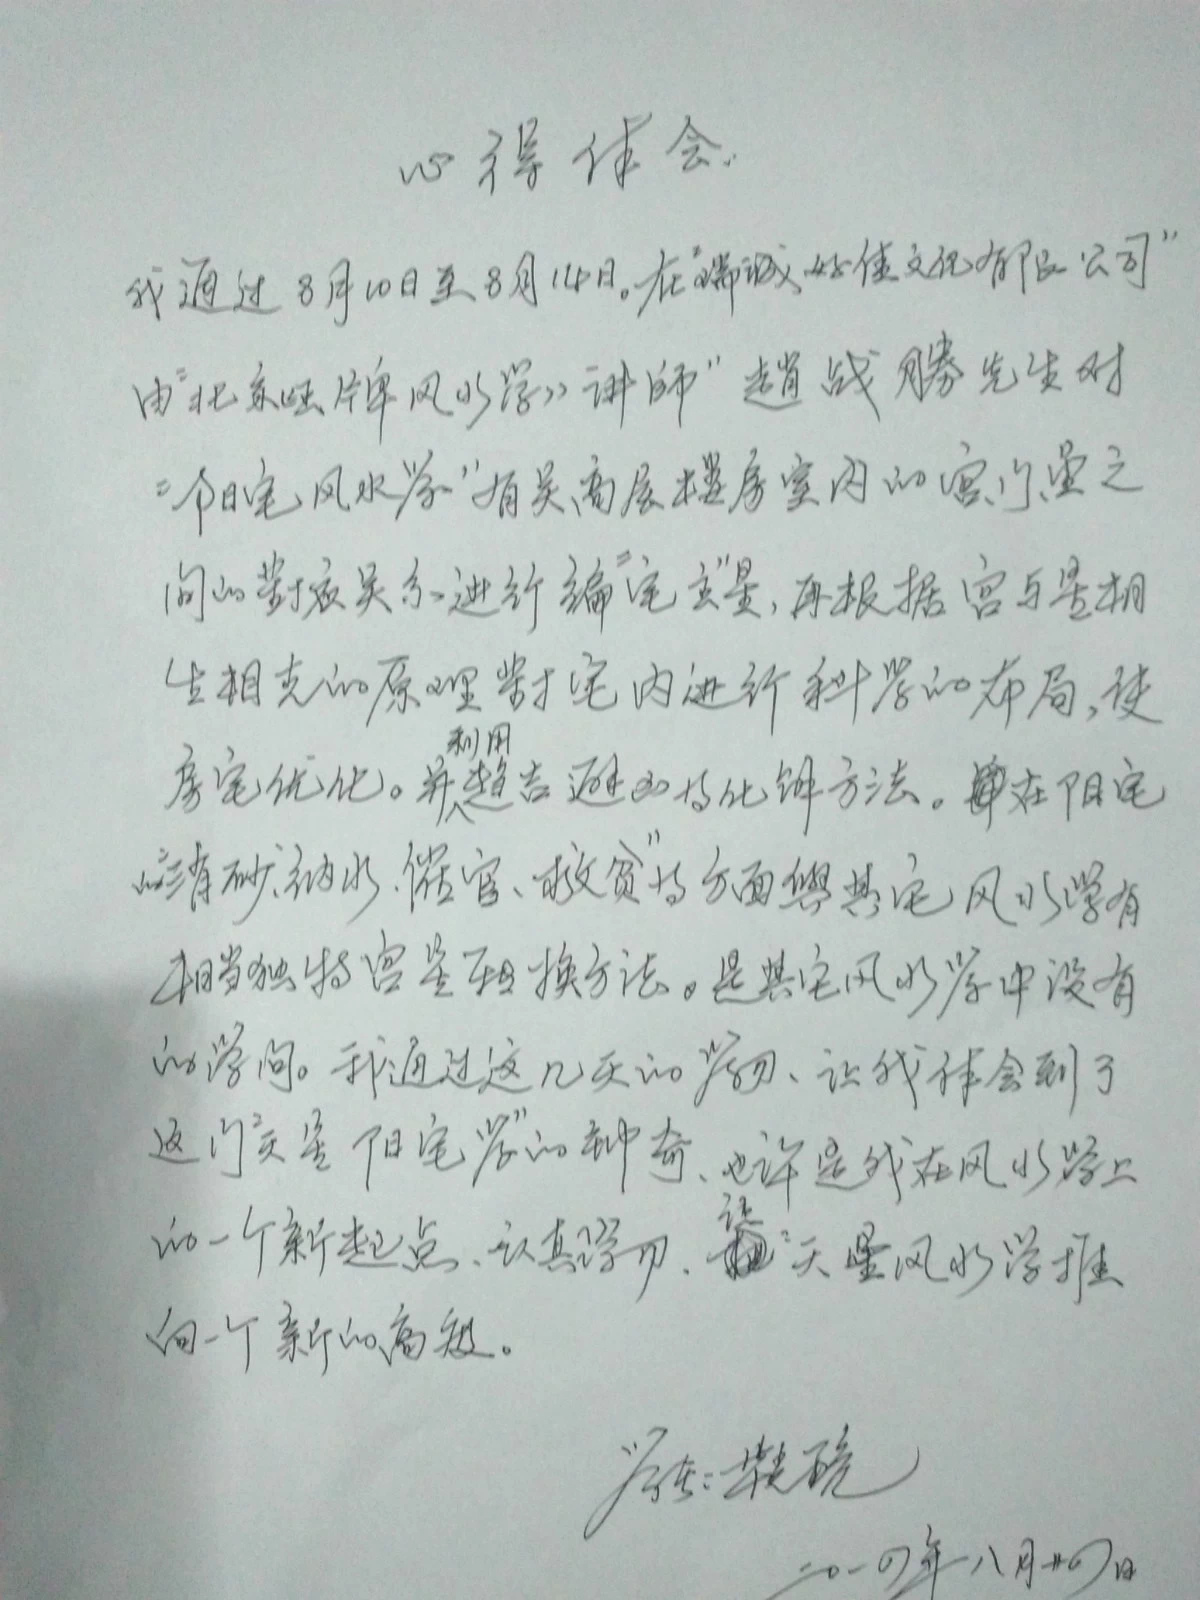 心得体会
我通过8月10日至8月14日。在"瑞诚好佳文化有限公司"
由"北京旺牌风水学"讲师"趙战勝先生对
"阳宅风水学"有关高层楼房室内的宫、门、星之
间的對应关系进行编"宅主"星,再根据宫与星相
生相克的原理對宅内进行科学的布局,使
房宅优化。并利用趋吉避凶与化解方法。在阳宅
的"消砂、纳水、催官、救贫"等方面與其宅风水学有
相当独特宫星转换方法。是其宅风水学中没有
的学问。我通过这几天的学习、让我体会到了
这门"天星阳宅学"的神奇、也许是我在风水学上
的一个新起点、认真学习、让"天星风水学推
向一个新的高级。
学生:
二〇一四年八月廿四日